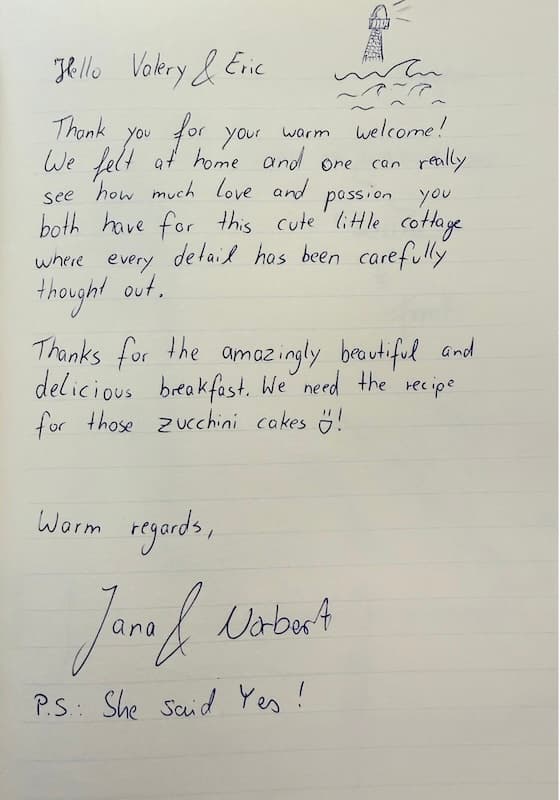 Hello Valery & Eric
Thank you for your warm welcome!
We felt at home and one can really
see how much love and passion you
both have for this cute little cottage
where every detail has been carefully
thought out.
Thanks for the amazingly beautiful and
delicious breakfast. We need the recipe
for those zucchini cakes !
Warm regards,
Jana & Norbert
P.S.: She said Yes !